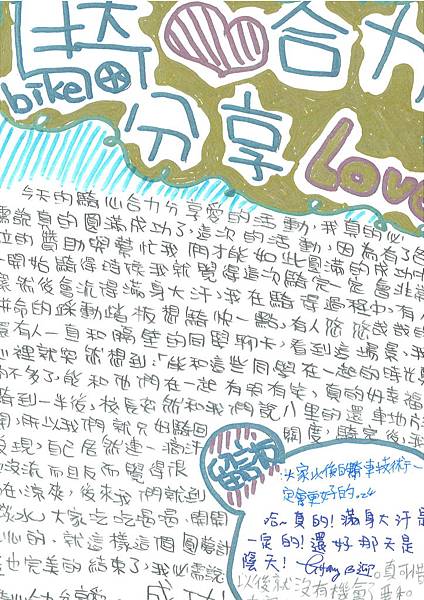 騎 合力
bike
分享 Love
今天的騎心合力分享愛的活動,我真的心
需說真的圓滿成功了,這次的活動,因為有了各
位的贊助與幫忙我們才能如此圓滿的成功
一開始騎得時候我就覺得這次騎完一定會非常
然後會流得滿身大汗,我在騎得過程中,有人
拼命的踩動踏板想騎快一點,有人悠悠哉哉的
還有人一直和隔壁的同學聊天,看到這場景,我
心裡就突然想到:「能和這些同學在一起的時
不多了,能和他們在一起有說有笑,真的好幸福
騎到一半後,校長突然和我們說八里的還車地方
關,所以我們就只好騎回
關渡,騎完後,我
發現,自己居然連一滴汗
沒流而且反而覺得很
在涼爽,後來我們就到
淡水,大家吃吃喝喝、開開
心心的,就這樣這個圓夢計
也完美的結束了,我必需說
合力分享愛 成功!
大家以後的騎車技術一
定會更好的.
哈~真的!滿身大汗是
一定的!還好那天是
陰天!
真可惜
以後就沒有機會 再和